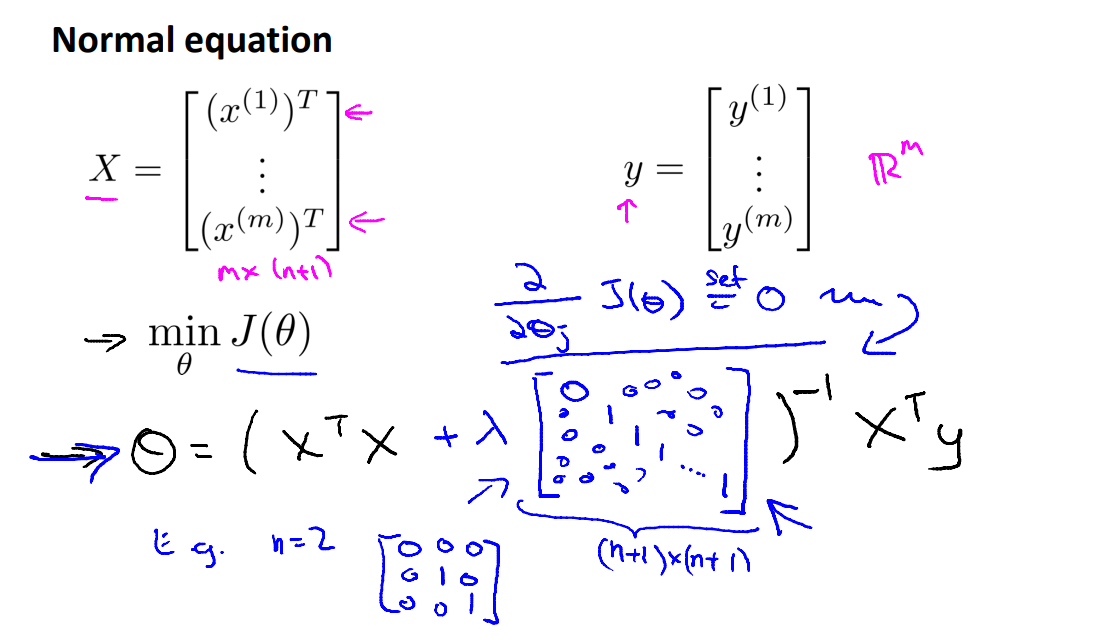 Normal equation
X = [ (x^(1))^T ⋮ (x^(m))^T ] ← ←
m × (n+1)
y = [ y^(1) ⋮ y^(m) ] ℝ^m
↑
∂/∂θ_j J(θ) set = 0
→ min_θ J(θ)
→ θ = ( X^T X + λ [ 0 0 0 0 0
0 1 0
0 1 0
0 0 1 ....
0 0 0 1 ] )^-1 X^T y
(n+1)×(n+1)
E.g. n=2 [ 0 0 0
0 1 0
0 0 1 ]